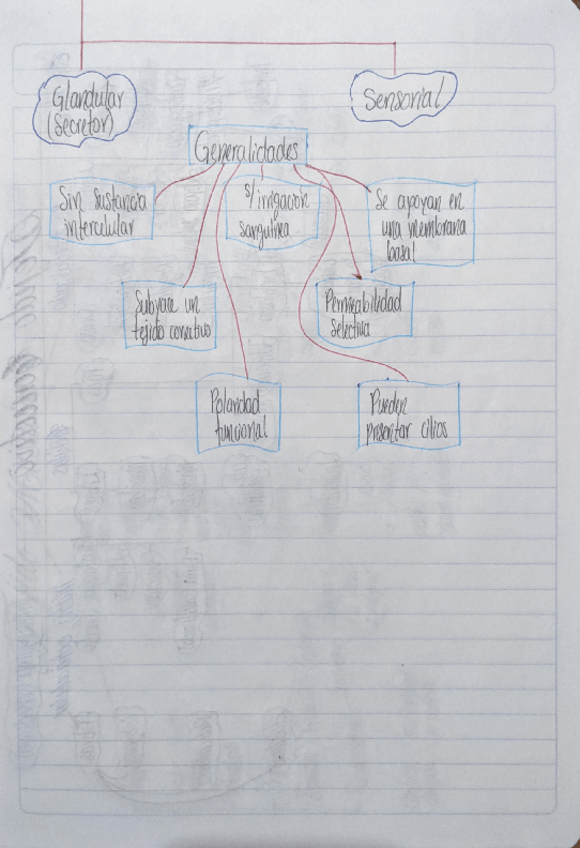 Glandular
(Secretor)
Sensorial
Generalidades
Sin sustancia
intercelular
s/ irrigación
sanguínea
Se apoyan en
una membrana
basal
Subyace un
tejido conectivo
Permeabilidad
Selectiva
Polaridad
funcional
Pueden
presentar cilios